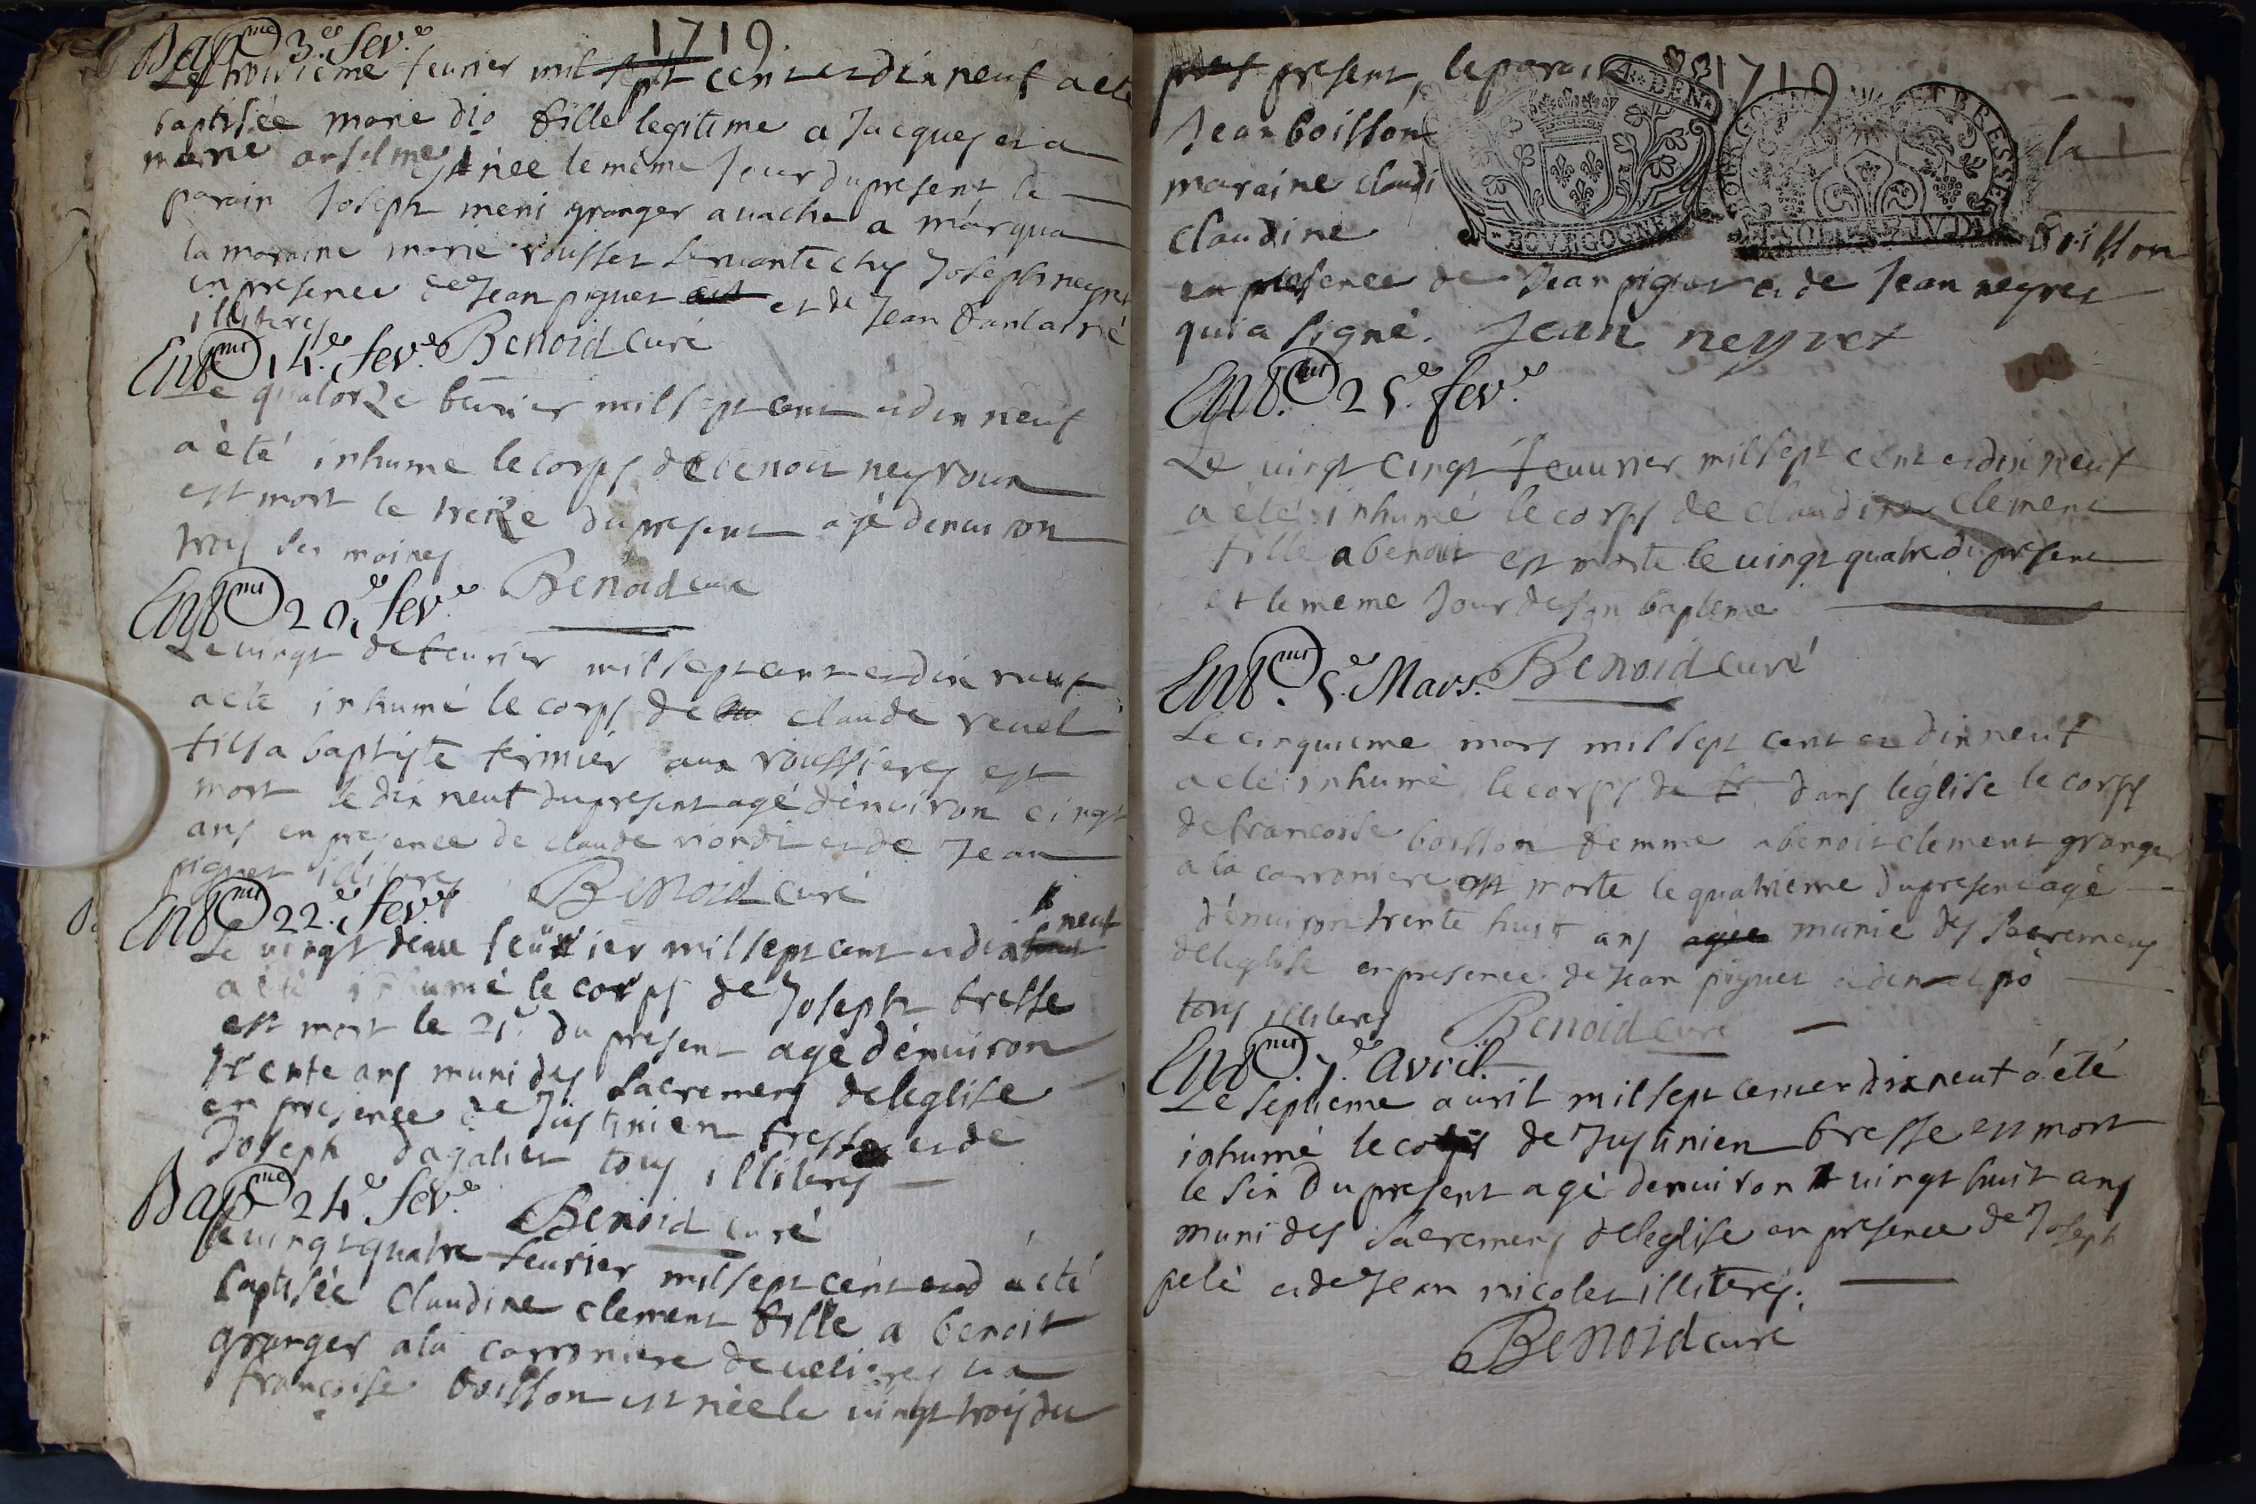 1719.
Bap.me 3.e fev.e
Le troisieme feurier mil sept cent et dix neuf a ete
baptisée marie dio fille legitime a Jacques et a
marie anselme née le même Jour du present, le
parain Joseph meni granger a a marqua
la maraine marie rousset servante ches Joseph neyret
en presence de Jean piguet et de Jean
illiteres
Benoid curé
Ent.mt 14.e fev.e
Le quatorze feurier mil sept cent et dix neuf
a été inhume le corps de benoit
est mort le treize du present agé denuiron
trois semaines
Benoid curé
Ent.mt 20.e fev.e
Le uingt de feurier mil sept cent et dix neuf
a été inhumé le corps de claude reuel
fils a baptiste fermier aux roussieres est
mort le dix neuf du present agé dénuiron cinqt
ans en presence de claude et de Jean
piguet illiteres
Benoid curé
Ent.mt 22.e fev.e
neuf
Le uingt deux feurier mil sept cent et dix
a été inhumé le corps de Joseph bresse
est mort le 21.e du present agé dénuiron
trente ans muni des sacremens deleglise
en presence de Justinien bresse et de
Joseph tous illiteres
Benoid curé
Bap.me 24.e fev.e
le uingt quatre feurier mil sept cent a été
baptisée Claudine clement fille a benoit
granger a la carroniere de et a
françoise boisson est née le uingt trois du
1719
present, le parain
Jean boisson la
maraine claudi
claudine boisson
BOURGOGNE
en presence de Jean piguet et de Jean neyret
qui a signé. Jean neyret
Ent.mt 25.e fev.e
Le uingt cinqt feuurier mil sept cent et dix neuf
a été inhumé le corps de claudine clement
fille a benoit est morte le uingt quatre du present
et le meme Jour de son bapteme
Benoid curé
Ent.mt 5.e Mars.
Le cinquieme mars mil sept cent et dix neuf
a été inhumé le corps de dans léglise le corps
de francoise boisson femme a benoit clement granger
a la carroniere est morte le quatrieme du present agé
dénuiron trente huit ans munie des sacremens
deleglise en presence de Jean piguet
tous illiteres
Benoid curé
Ent.mt 7.e Avril.
Le septieme auril mil sept cent et dix neuf a été
inhumé le corps de Justinien bresse est mort
le six du present agé denuiron uingt huit ans
muni des sacremens deleglise en presence de Joseph
pelé et de Jean nicolet illiterés.
Benoid curé